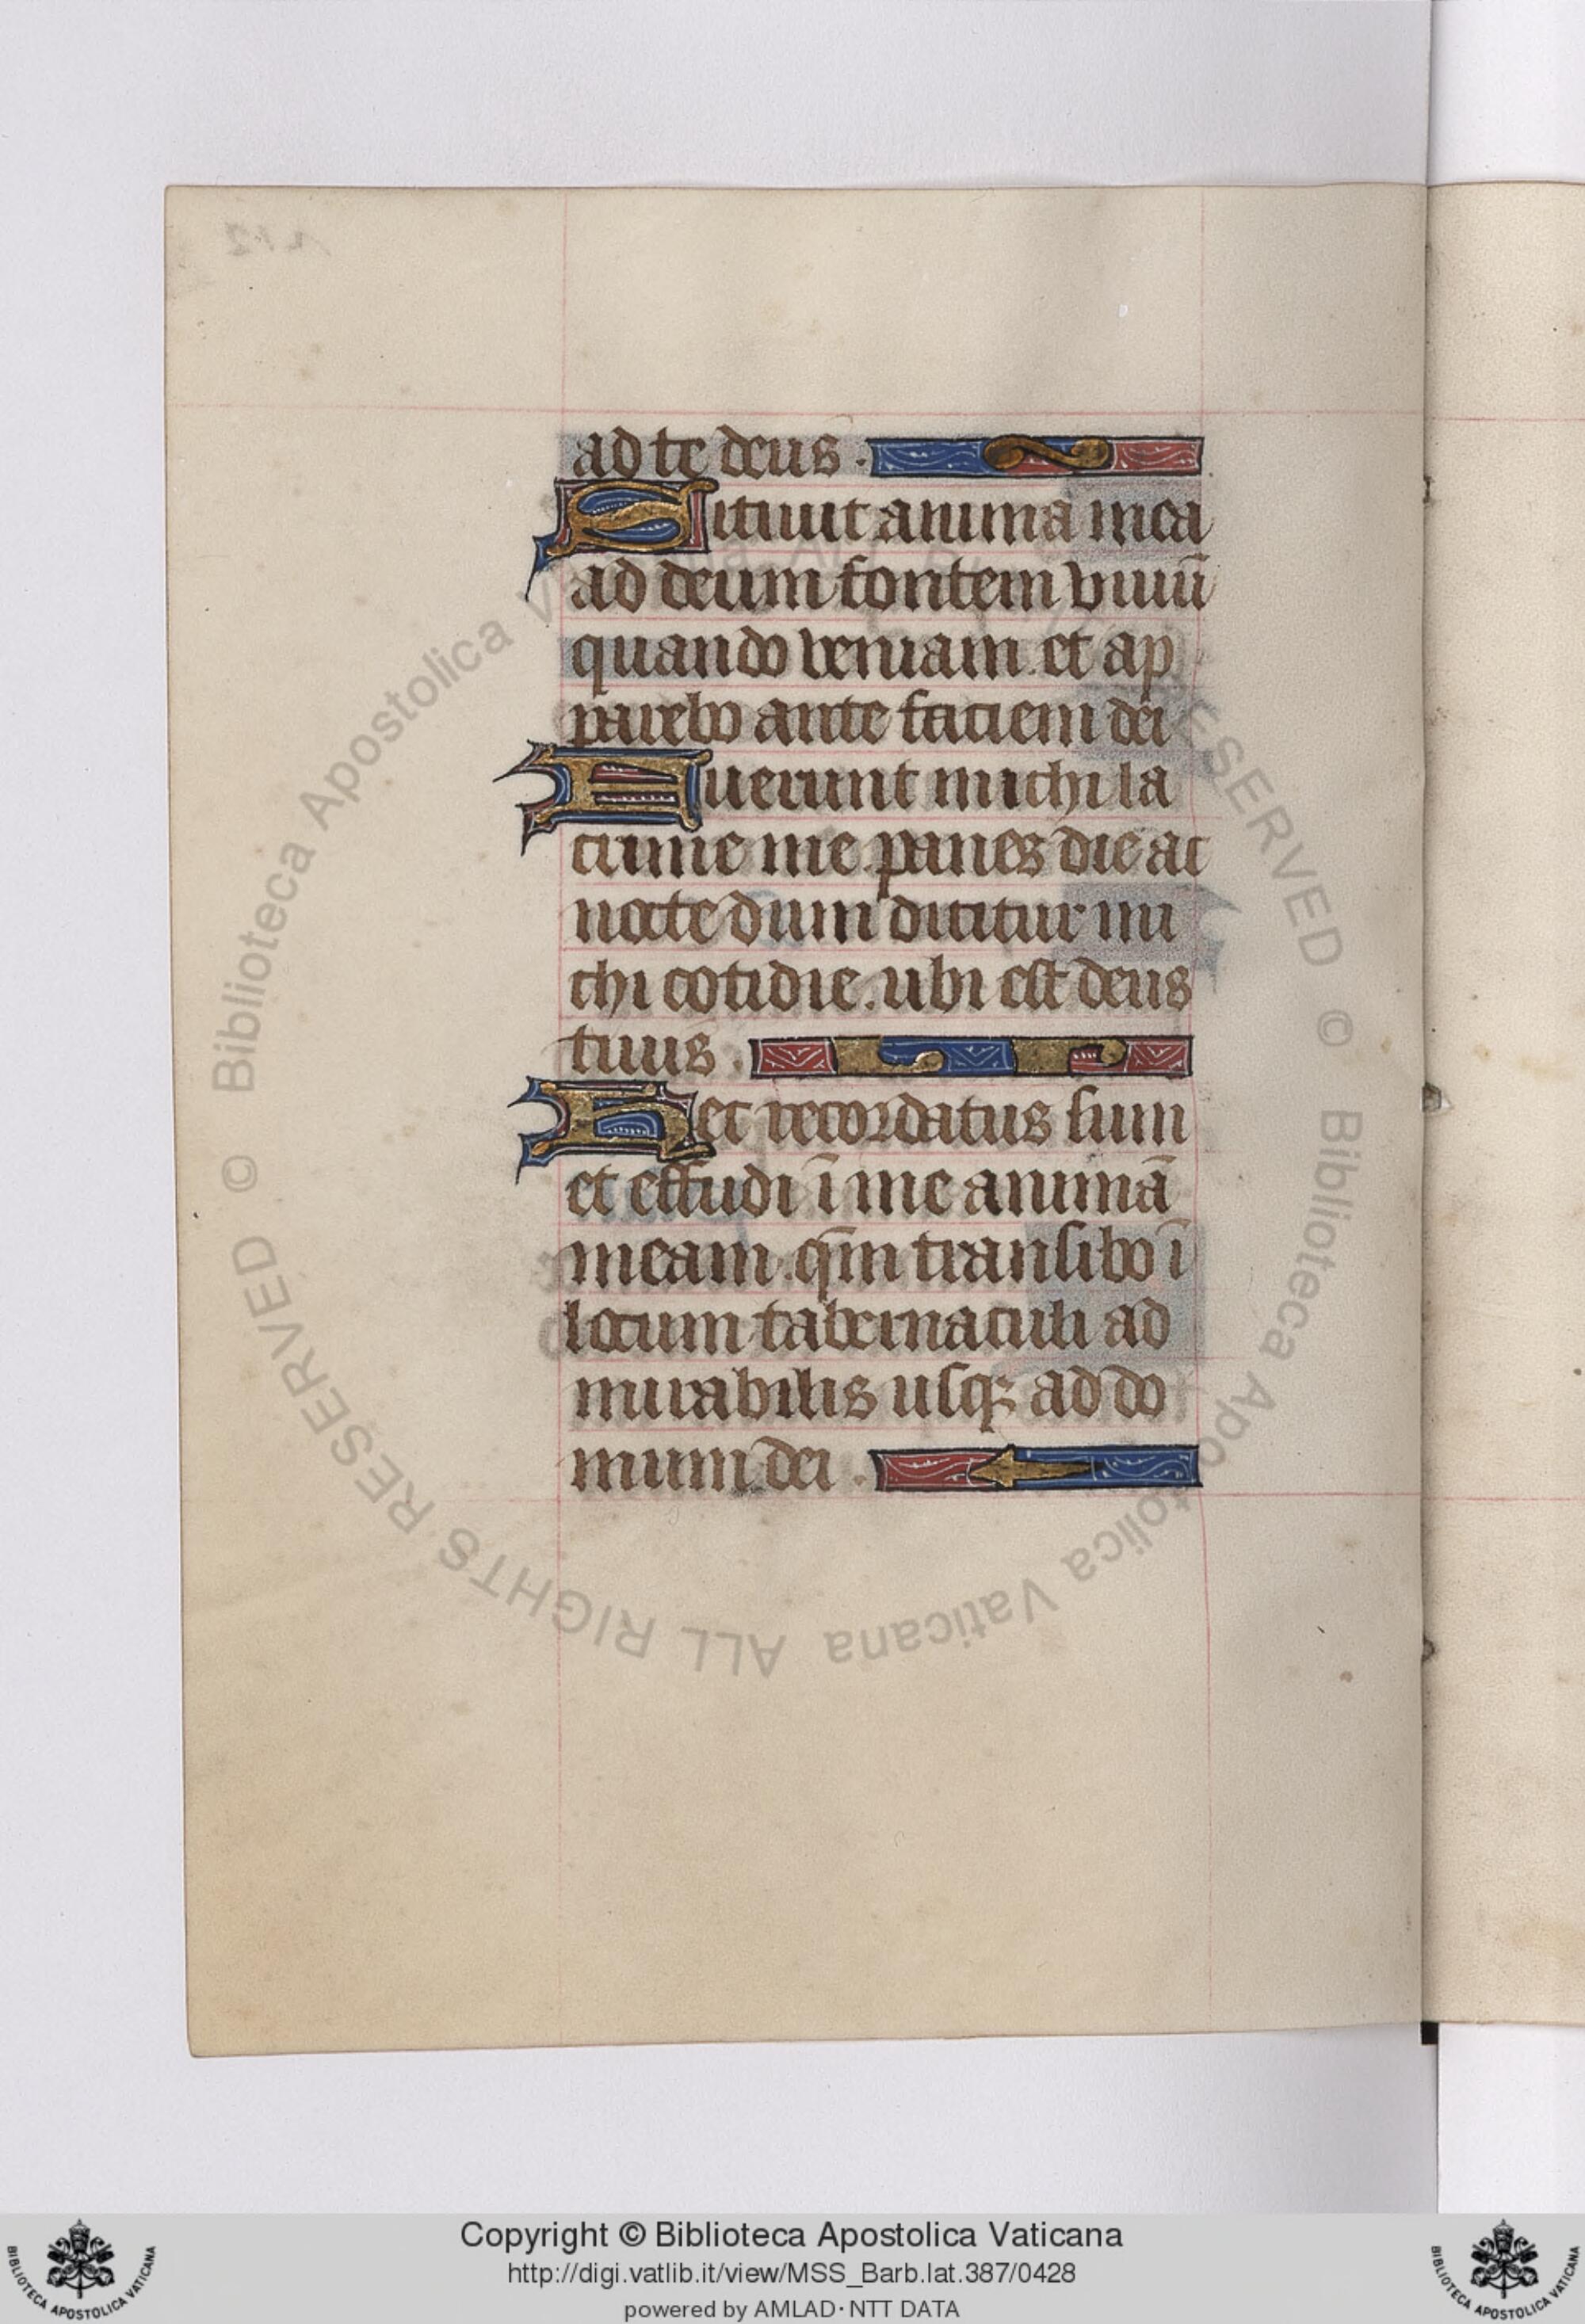 ad te deus .
Sitiuit anima mea
ad deum fontem viuū
quando veniam . et ap
parebo ante faciem dei
Fuerunt michi la
crime mee . panes die ac
nocte dum dicitur mi
chi cotidie . ubi est deus
tuus .
Hec recordatus sum
et effudi ī me animā
meam . qm̄ transibo ī
locum tabernaculi ad
mirabilis usqꝫ ad do
mum dei .
© Biblioteca Apostolica Vaticana ALL RIGHTS RESERVED
© Biblioteca Apostolica Vaticana ALL RIGHTS RESERVED
Copyright © Biblioteca Apostolica Vaticana
http://digi.vatlib.it/view/MSS_Barb.lat.387/0428
powered by AMLAD · NTT DATA
BIBLIOTECA APOSTOLICA VATICANA
BIBLIOTECA APOSTOLICA VATICANA